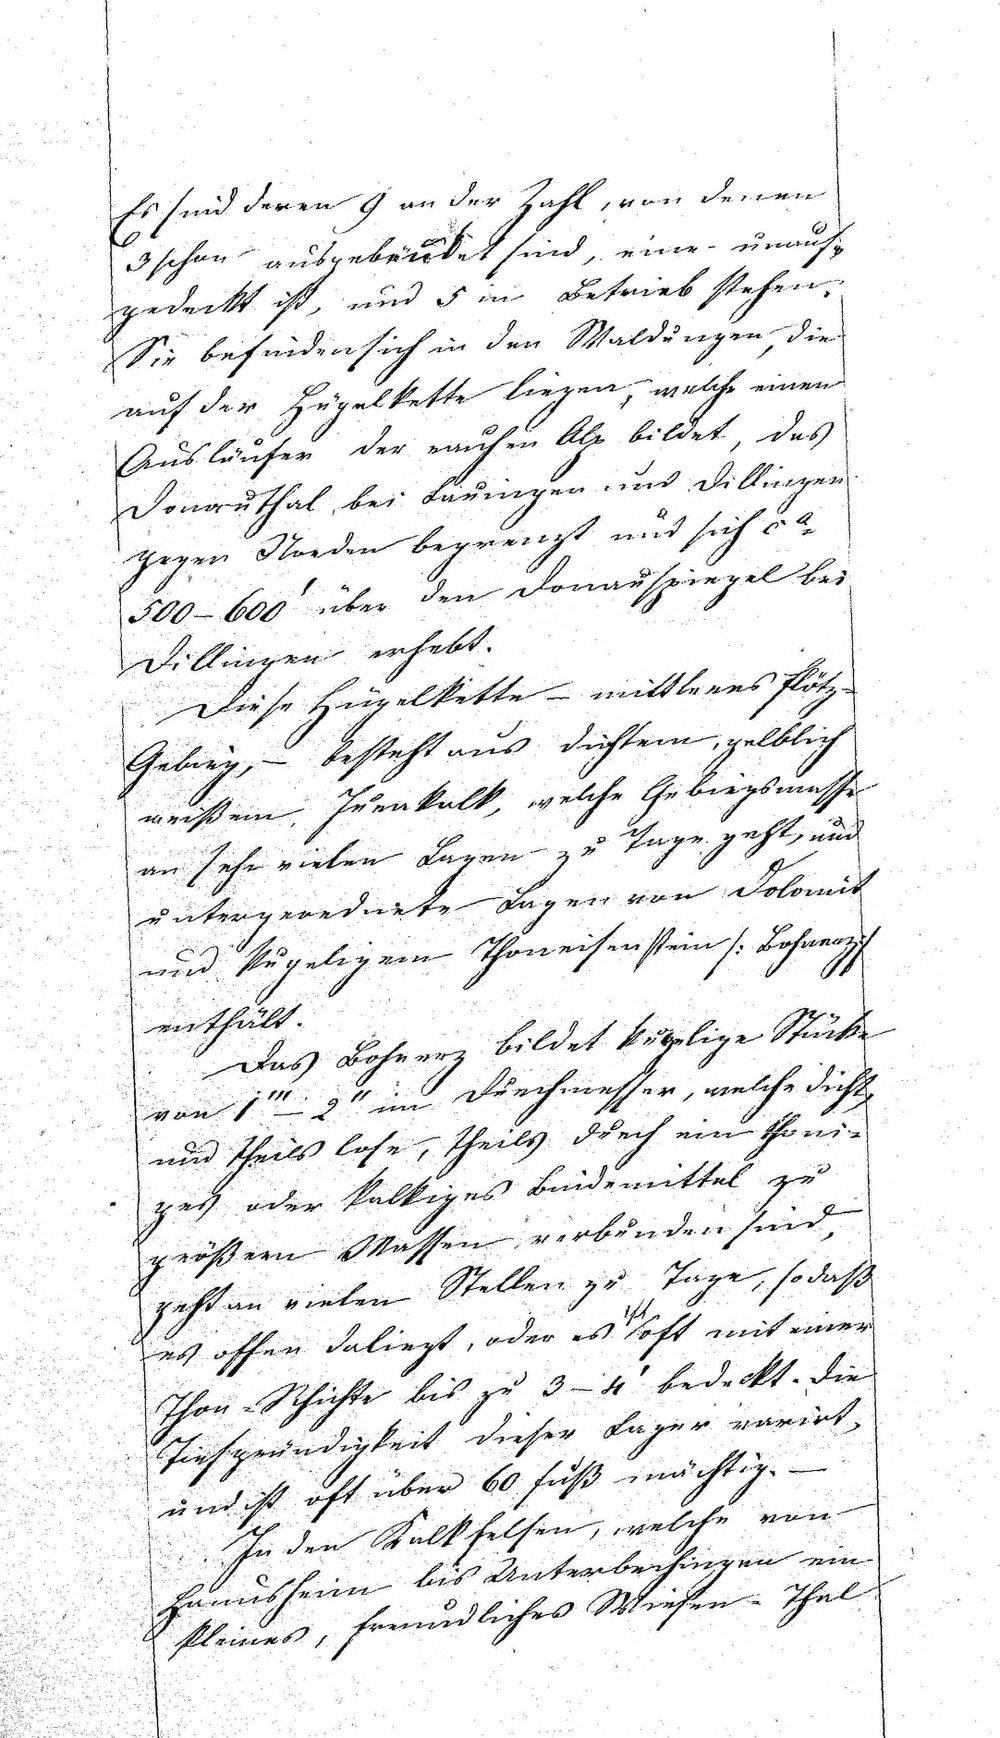 Es sind deren 9 an der Zahl, von denen
3 schon ausgebeutet sind, eine unauf-
gedeckt ist, und 5 in Betrieb stehen.
Sie befinden sich in den Waldungen, die
auf der Hügelkette liegen, welche einen
Ausläufer der rauhen Alp bildet, das
Donauthal bei Lauingen und Dillingen
gegen Norden begrenzt und sich ca
500–600' über den Donauspiegel bei
Dillingen erhebt.
Diese Hügelkette – mittleres Flötz-
Gebirg, – besteht aus dichtem, gelblich
weißem Jurakalk, welche Gebirgsmasse
an sehr vielen Lagen zu Tage geht, und
untergeordnete Lagen von Dolomit
und kugeligem Thoneisenstein /: Bohnerz :/
enthält.
Das Bohnerz bildet kugelige Stücke
von 1''' – 2" im Durchmesser, welche dicht,
und theils lose, theils durch ein thoni-
ges oder kalkiges Bindemittel zu
größern Massen verbunden sind,
geht an vielen Stellen zu Tage, so daß
es offen daliegt, oder es ist oft mit einer
Thon-Schichte bis zu 3–4' bedeckt. Die
Tiefgründigkeit dieser Lager varirt,
und ist oft über 60 Fuß mächtig. –
In den Kalkfelsen, welche von
Haunsheim bis Unterbechingen ein
kleines, freundliches Wiesen-Thal